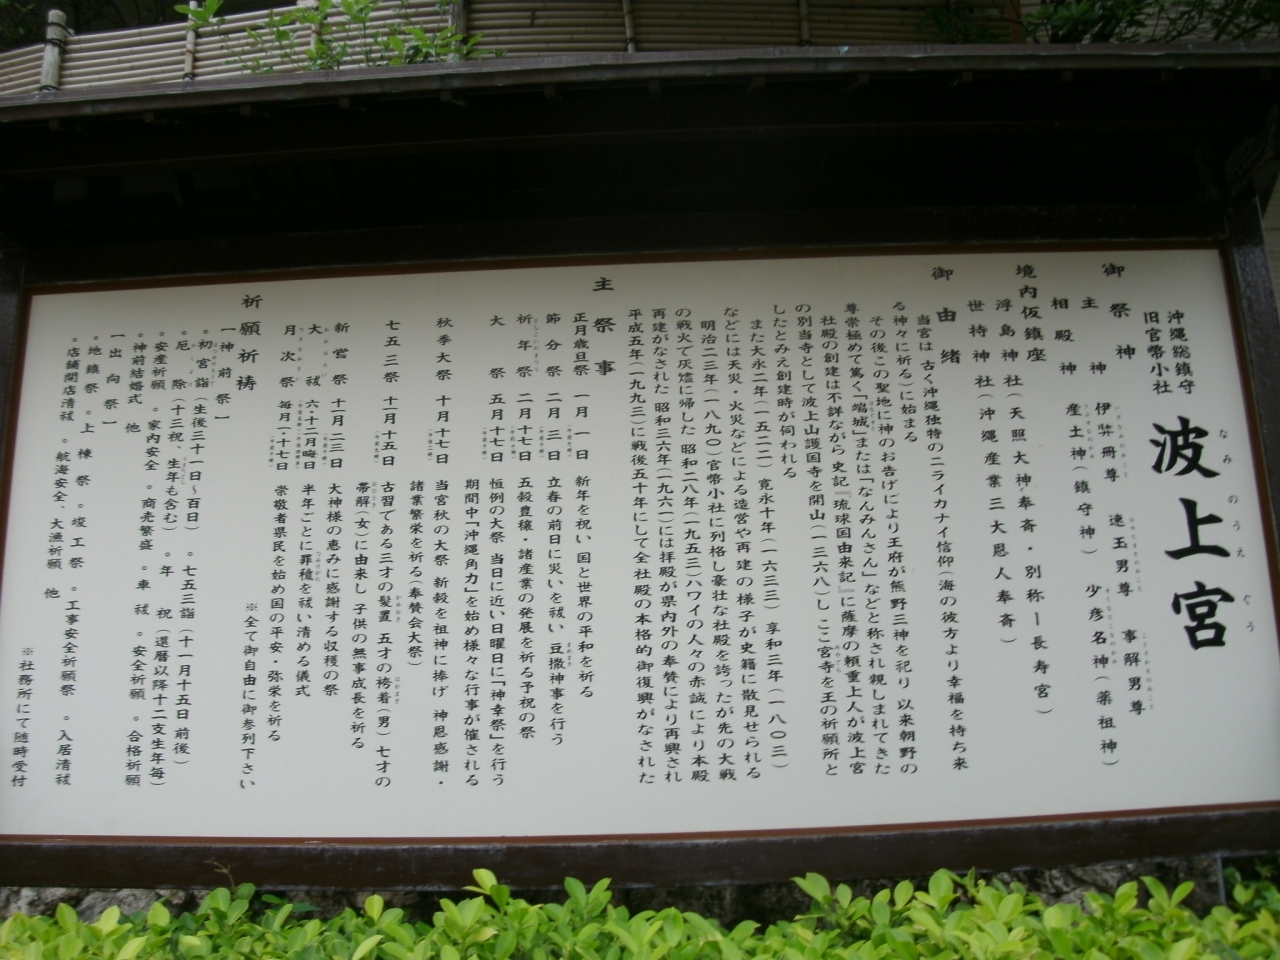 沖縄総鎮守
旧官幣小社
波上宮
なみのうえぐう
御祭神
主神 伊弉冊尊 速玉男尊 事解男尊
相殿神 産土神(鎮守神) 少彦名神(薬祖神)
境内仮鎮座
浮島神社(天照大神奉斎・別称ー長寿宮)
世持神社(沖縄産業三大恩人奉斎)
御由緒
当宮は 古く沖縄独特のニライカナイ信仰(海の彼方より幸福を持ち来
る神々に祈る)に始まる
その後この聖地に神のお告げにより王府が熊野三神を祀り 以来朝野の
尊崇極めて篤く「端城」または「なんみんさん」などと称され親しまれてきた
社殿の創建は不詳ながら史記『琉球国由来記』に薩摩の頼重上人が波上宮
の別当寺として波上山護国寺を開山(一三六八)し ここ宮寺を王の祈願所と
したとみえ創建時が伺われる
また大永二年(一五二二) 寛永十年(一六三三) 享和三年(一八〇三)
などには天災・火災などによる造営や再建の様子が史籍に散見せられる
明治二三年(一八九〇)官幣小社に列格し豪壮な社殿を誇ったが先の大戦
の戦火で灰燼に帰した 昭和二八年(一九五三)ハワイの人々の赤誠により本殿
再建がなされた 昭和三六年(一九六一)には拝殿が県内外の奉賛により再興され
平成五年(一九九三)に戦後五十年にして全社殿の本格的御復興がなされた
主祭事
正月歳旦祭 一月一日 新年を祝い 国と世界の平和を祈る
節分祭 二月三日 立春の前日に災いを祓い 豆撒神事を行う
祈年祭 二月十七日 五穀豊穣・諸産業の発展を祈る予祝の祭
大祭 五月十七日 恒例の大祭 当日に近い日曜日に「神幸祭」を行う
期間中「沖縄角力」を始め様々な行事が催される
秋季大祭 十月十七日 当宮秋の大祭 新穀を祖神に捧げ 神恩感謝・
諸業繁栄を祈る(奉賛会大祭)
七五三祭 十一月十五日 古習である三才の髪置 五才の袴着(男) 七才の
帯解(女)に由来し 子供の無事成長を祈る
新嘗祭 十一月二三日 大神様の恵みに感謝する収穫の祭
大祓 六・十二月晦日 半年ごとに罪穢を祓い清める儀式
月次祭 毎月一・十七日 崇敬者県民を始め国の平安・弥栄を祈る
※全て御自由に御参列下さい
祈願祈祷
【神前祭】
。初宮詣(生後三十一日～百日) 。七五三詣(十一月十五日前後)
。厄除(十三祝、生年も含む) 。年祝(還暦以降十二支生年毎)
。安産祈願 。家内安全 。商売繁盛 。車祓 。安全祈願 。合格祈願
。神前結婚式 他
【出向祭】
。地鎮祭 。上棟祭 。竣工祭 。工事安全祈願祭 。入居清祓
。店舗開店清祓 。航海安全、大漁祈願 他
※社務所にて随時受付